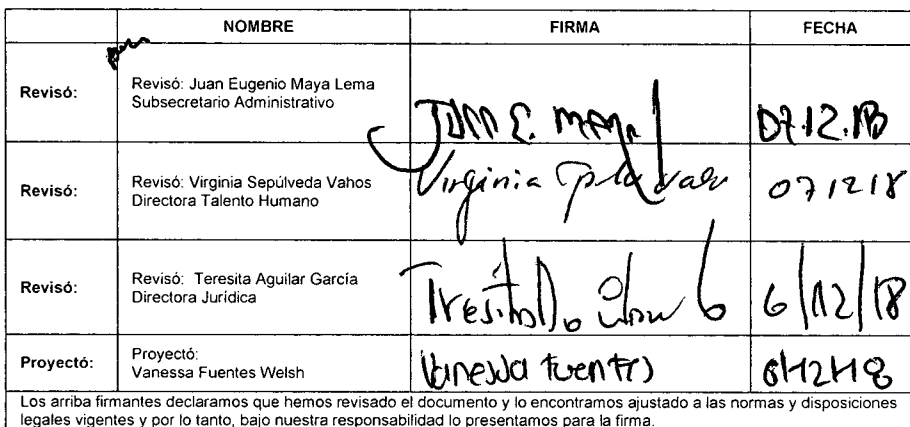 NOMBRE FIRMA FECHA
Revisó: Revisó: Juan Eugenio Maya Lema
Subsecretario Administrativo
Juan E. Maya 07.12.18
Revisó: Revisó: Virginia Sepúlveda Vahos
Directora Talento Humano
Virginia 07 12 18
Revisó: Revisó: Teresita Aguilar García
Directora Jurídica
6/12/18
Proyectó: Proyectó:
Vanessa Fuentes Welsh
Vanessa Fuentes 6/12/18
Los arriba firmantes declaramos que hemos revisado el documento y lo encontramos ajustado a las normas y disposiciones
legales vigentes y por lo tanto, bajo nuestra responsabilidad lo presentamos para la firma.